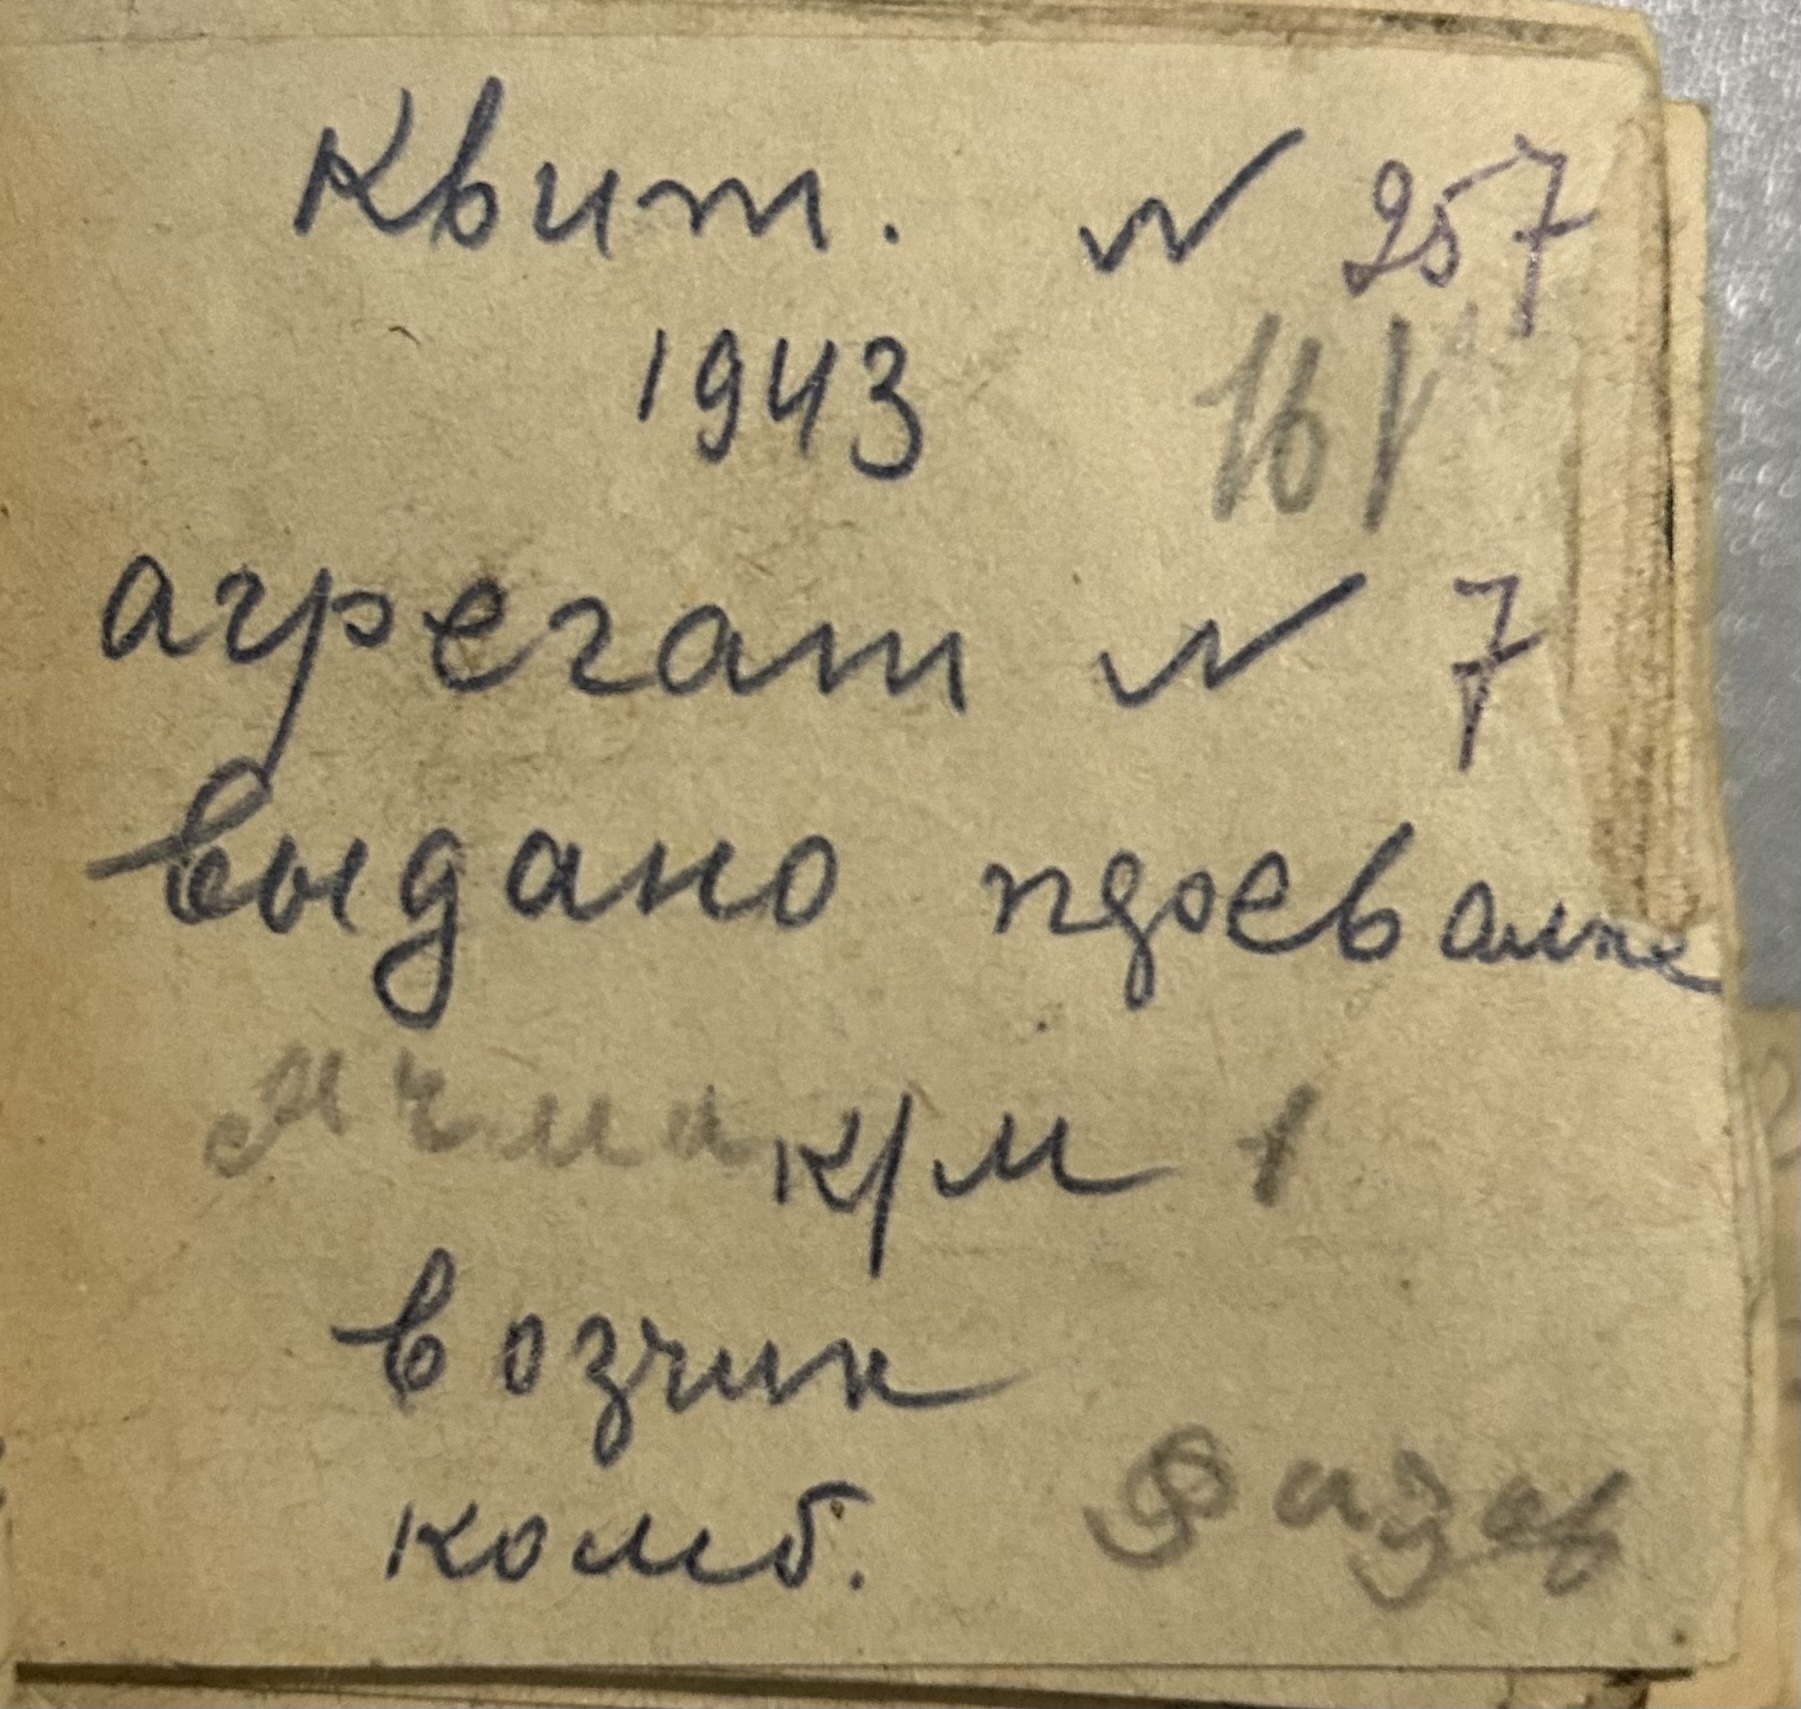 Квит. № 257
1943 161
агрегат № 7
выдано
к/м 1
возчик
комб.